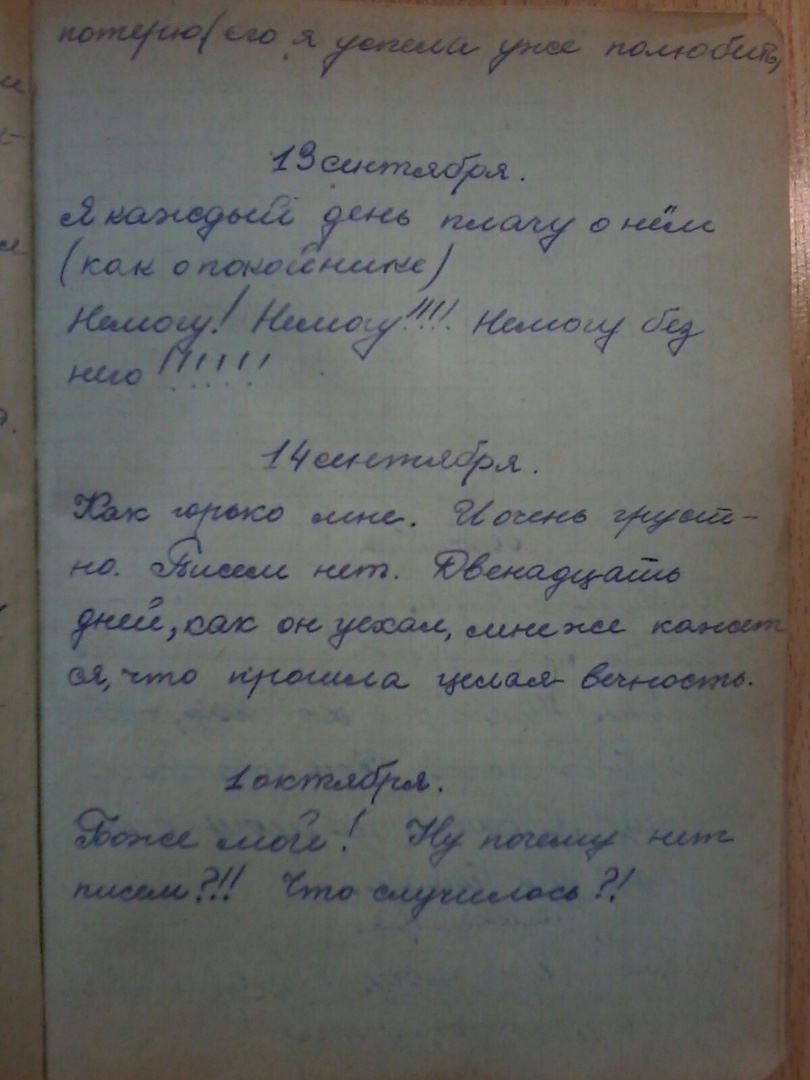 потерю (его я успела уже полюбить,
13 сентября.
Я каждый день плачу о нём
(как о покойнике)
Немогу! Немогу!!!! Немогу без
него!!!!!!
14 сентября.
Как горько мне. И очень груст-
но. Писем нет. Двенадцать
дней, как он уехал, мне же кажет
ся, что прошла целая вечность.
1 октября.
Боже мой! Ну почему нет
писем?!! Что случилось?!